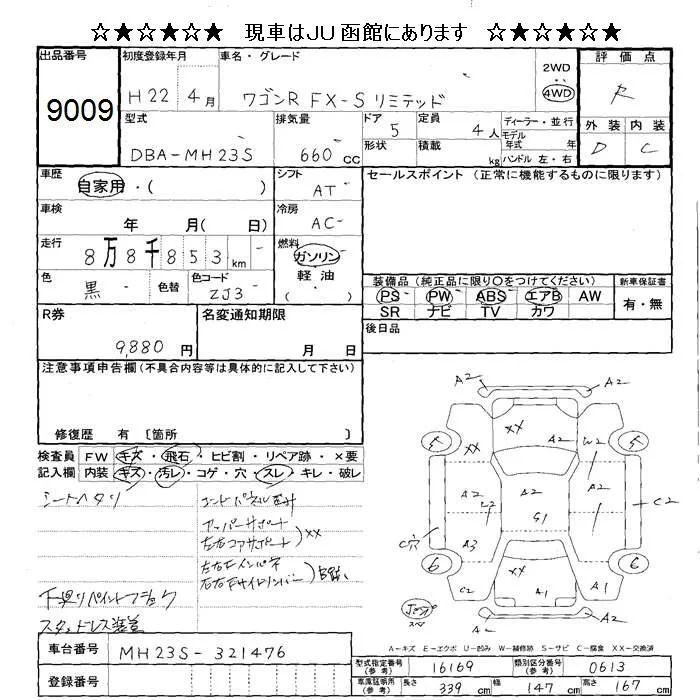 ☆★☆★☆★ 現車はJU函館にあります ☆★☆★☆★
出品番号 初度登録年月 車名・グレード 2WD 4WD 評価点
9009 H22 4月 ワゴンR FX-S リミテッド R
型式 排気量 ドア 定員 ディーラー・並行 外装 内装
DBA-MH23S 660cc 5 4人 モデル年式 年式 D C
形状 積載 kg ハンドル 左・右
車歴 自家用・( ) シフト AT セールスポイント (正常に機能するものに限ります)
車検 年 月( 日) 冷房 AC
走行 8万8千853km 燃料 ガソリン 軽油 ( )
色 黒 色替 色コード ZJ3
装備品 (純正品に限り○をつけてください) 新車保証書
PS PW ABS エアB AW 有・無
SR ナビ TV カワ
R券 9,880円 名変通知期限 月 日 後日品
注意事項申告欄 (不具合内容等は具体的に記入して下さい)
修復歴 有 〔箇所 〕
検査員 FW キズ・飛石・ヒビ割・リペア跡・×要
記入欄 内装 キズ・汚レ・コゲ・穴・スレ・キレ・破レ
シートヘタリ
アッパーサポート
左右コアサポート XX
左右Fインパネ
左右Fサイドメンバー
下廻りペイントフショク
スタッドレス装着
A2 A2
XX XX A2 W2 A2
A2 A2 A2 C2
G1
C穴 A3
6 6
C2 XX A1 A1
A-キズ E-エクボ U-凹み W-補修跡 S-サビ C-腐食 XX-交換済
車台番号 MH23S-321476
登録番号
型式指定番号 (参考) 16169 類別区分番号 (参考) 0613
車庫証明用 (参考) 長さ 339cm 幅 147cm 高さ 167cm